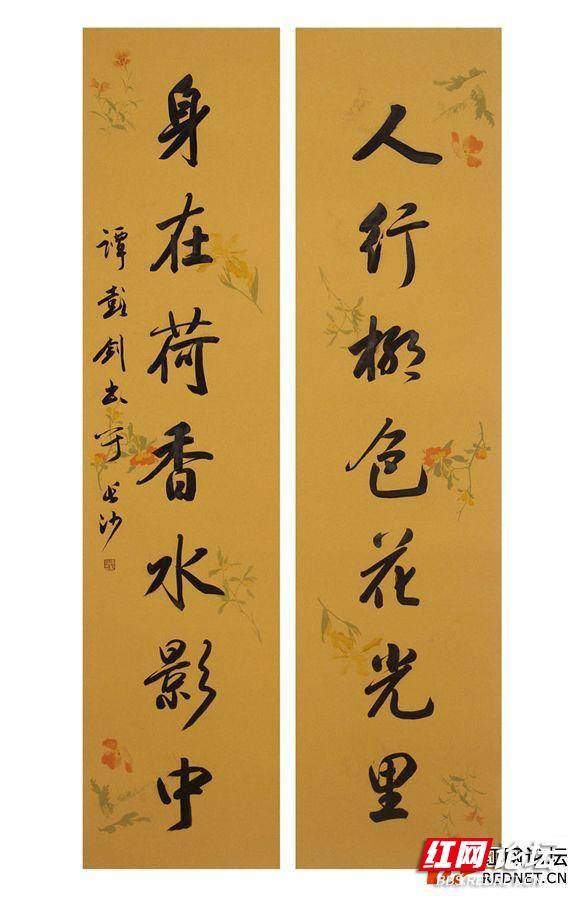 人行柳色花光里
身在荷香水影中
谭彭剑书于长沙
红网论坛
REDNET.CN